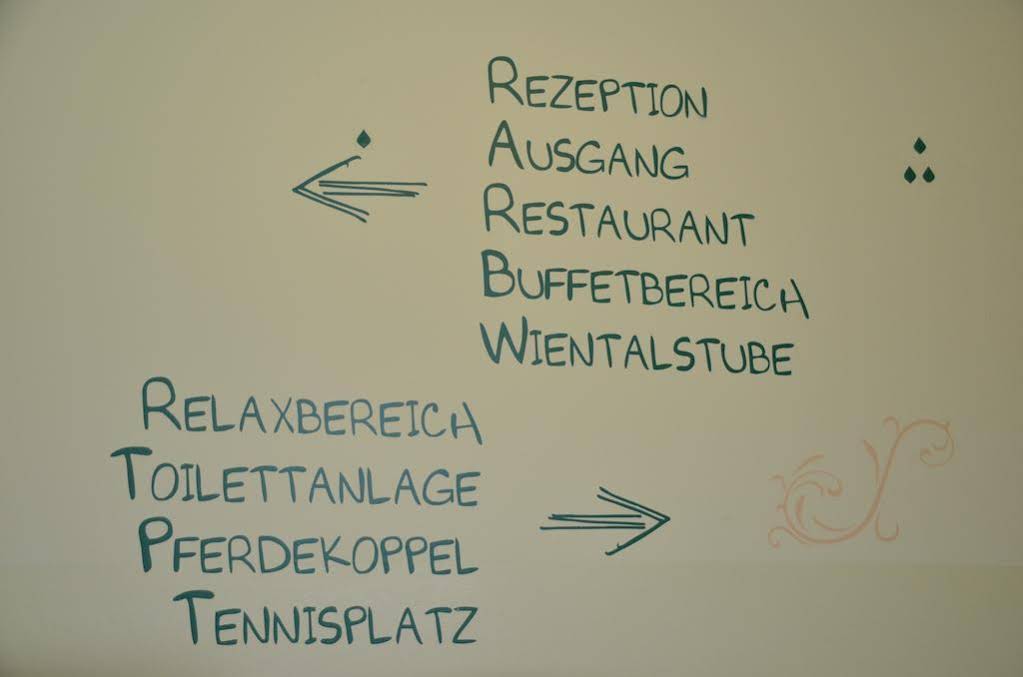 REZEPTION
AUSGANG
RESTAURANT
BUFFETBEREICH
WIENTALSTUBE
RELAXBEREICH
TOILETTANLAGE
PFERDEKOPPEL
TENNISPLATZ